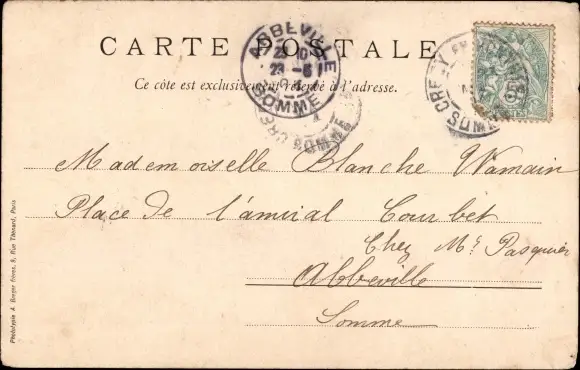 CARTE POSTALE
Ce côte est exclusivement réservé à l'adresse.
ABBEVILLE
SOMME
CRECY EN PONTHIEU
Mademoiselle Blanche Wamain
Place de l'amiral Courbet
Chez Mr Pasquier
Abbeville
Somme
Phototypie A. Berger frères, 9, Rue Thénard, Paris